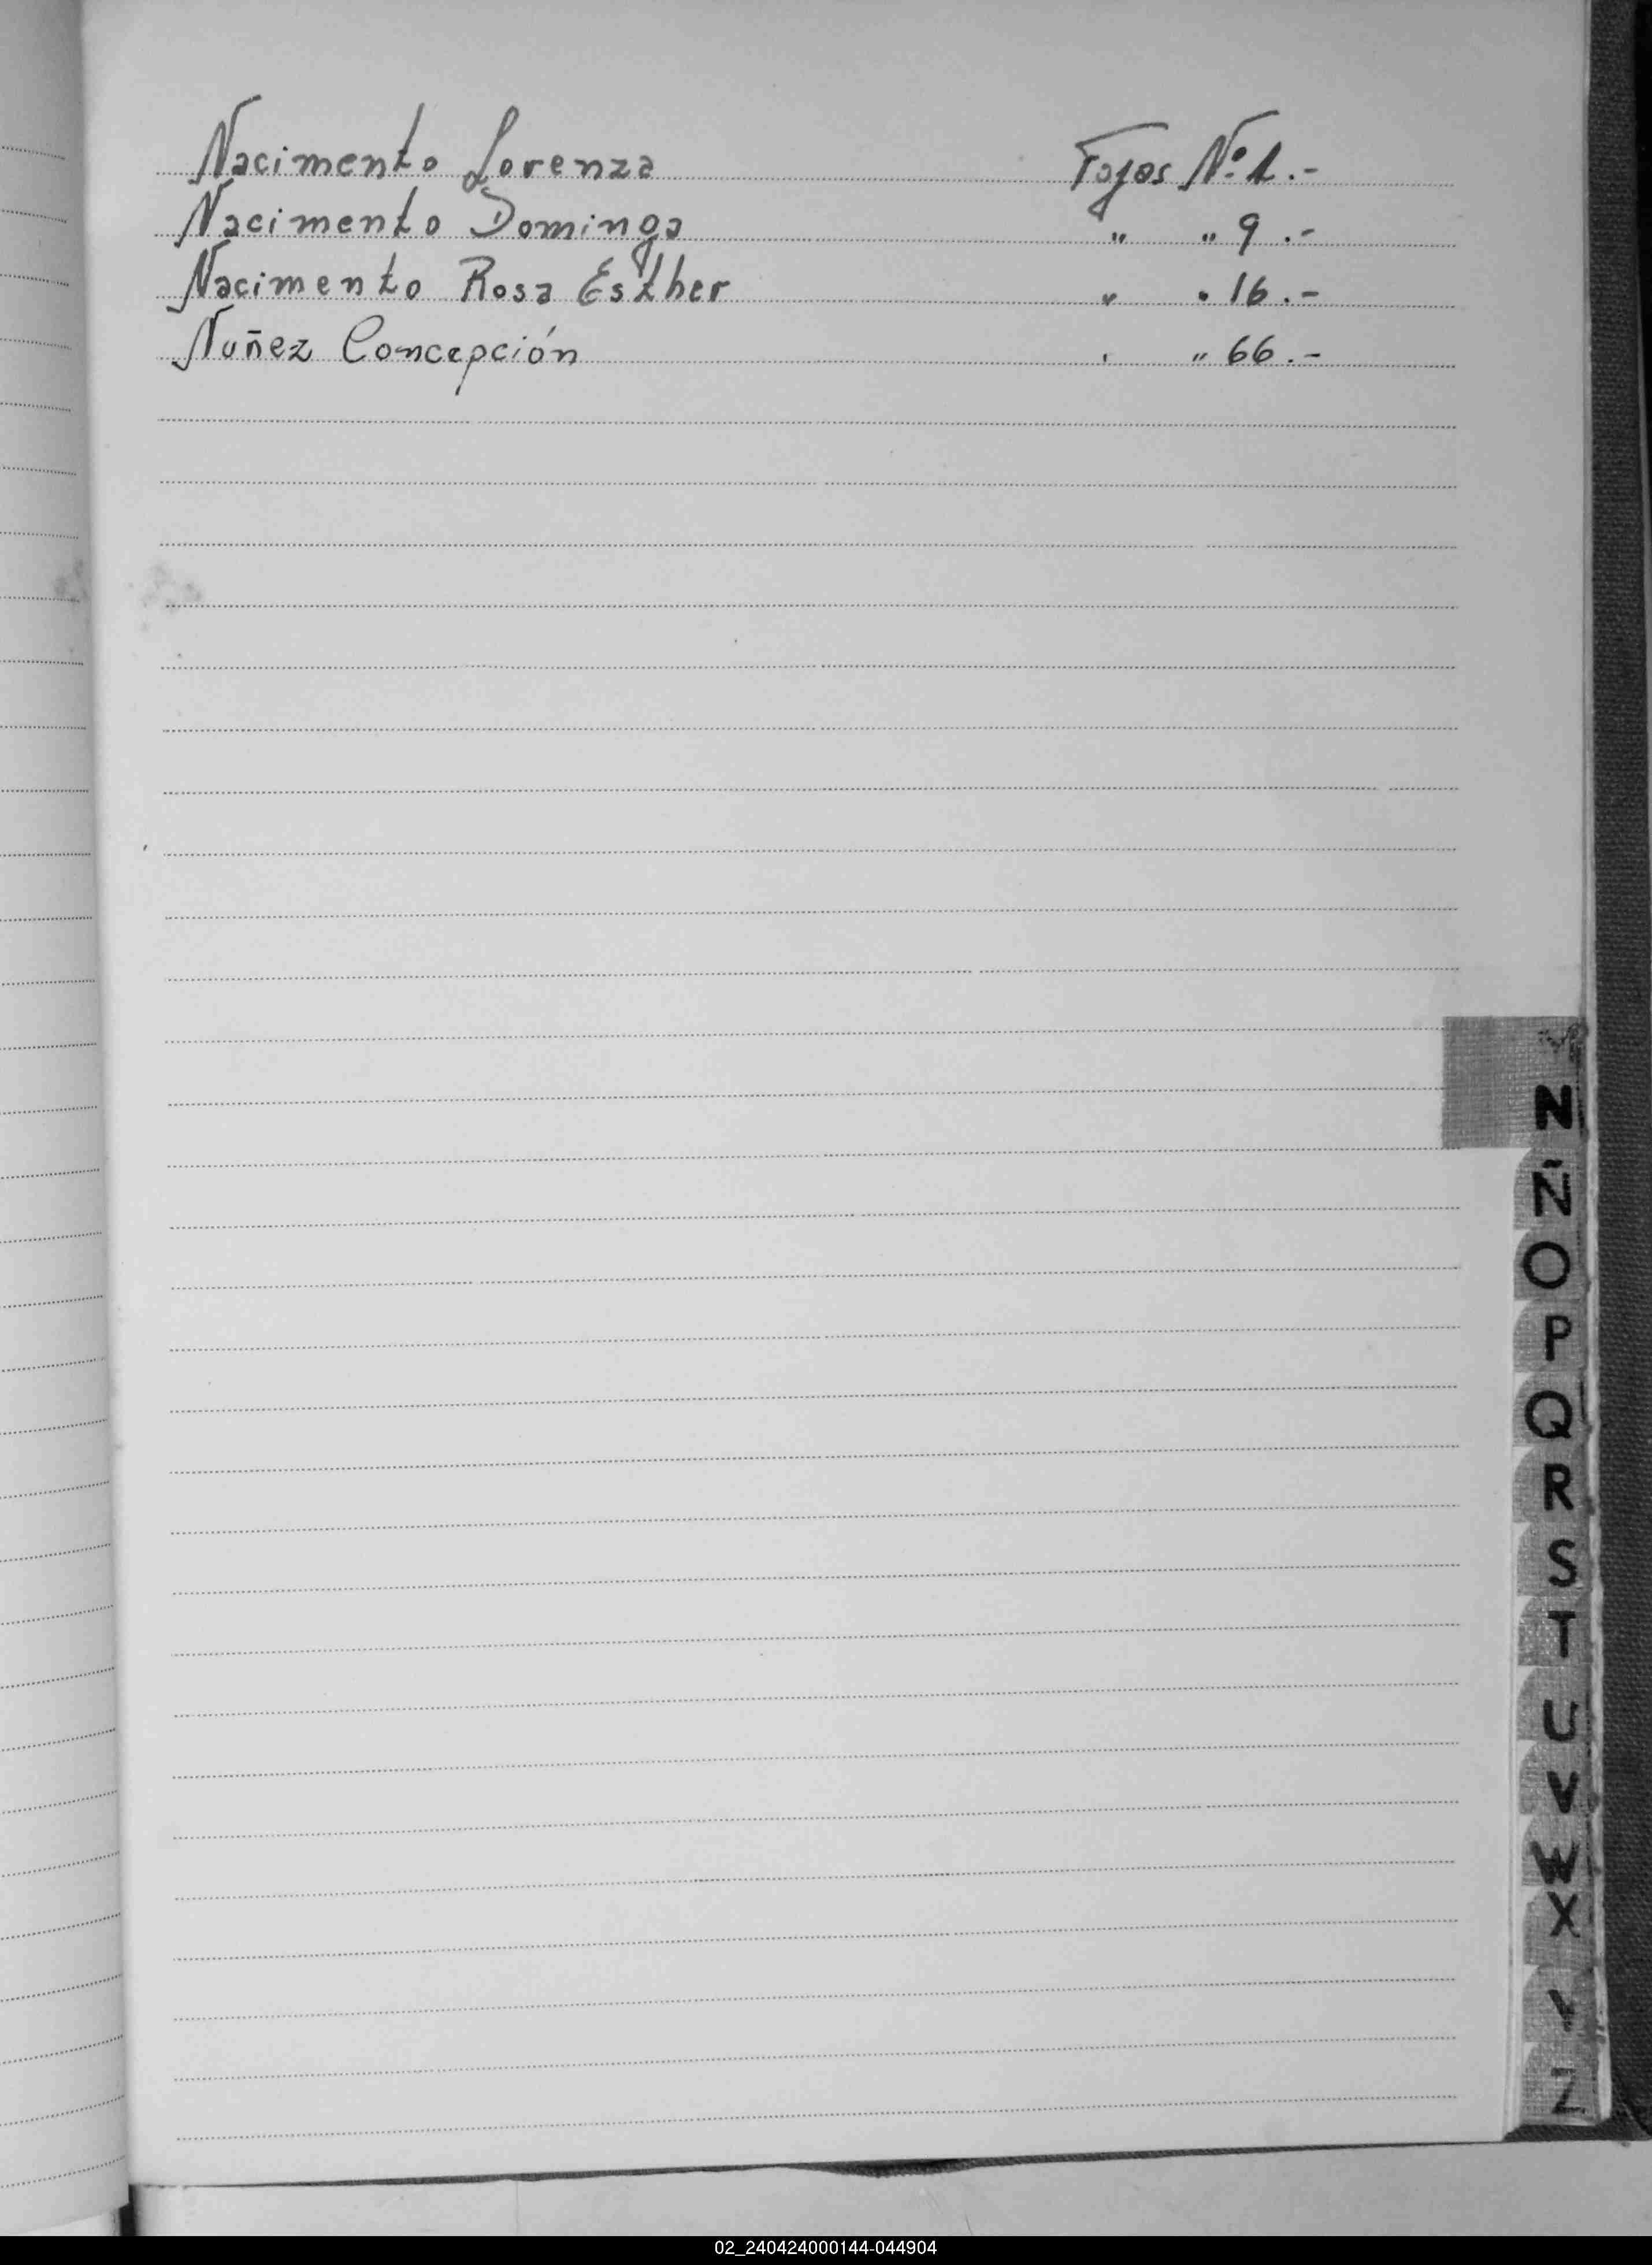 Nacimento Lorenza Fojas Nº 1.-
Nacimento Dominga " " 9.-
Nacimento Rosa Esther " " 16.-
Nuñez Concepción " " 66.-
N
Ñ
O
P
Q
R
S
T
U
V
W
X
Y
Z
02_240424000144-044904